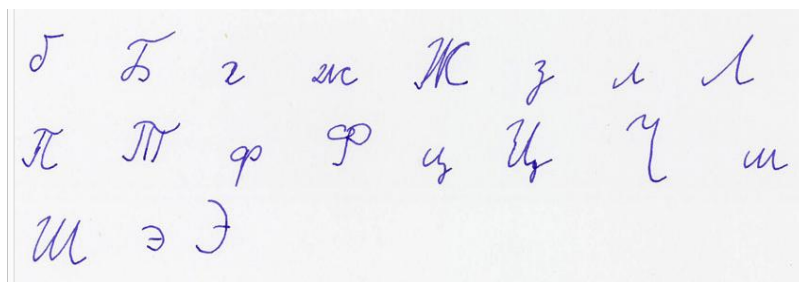 б Б г ж Ж з л Л
П Т ф Ф ц Ц Ч ш
Ш э Э